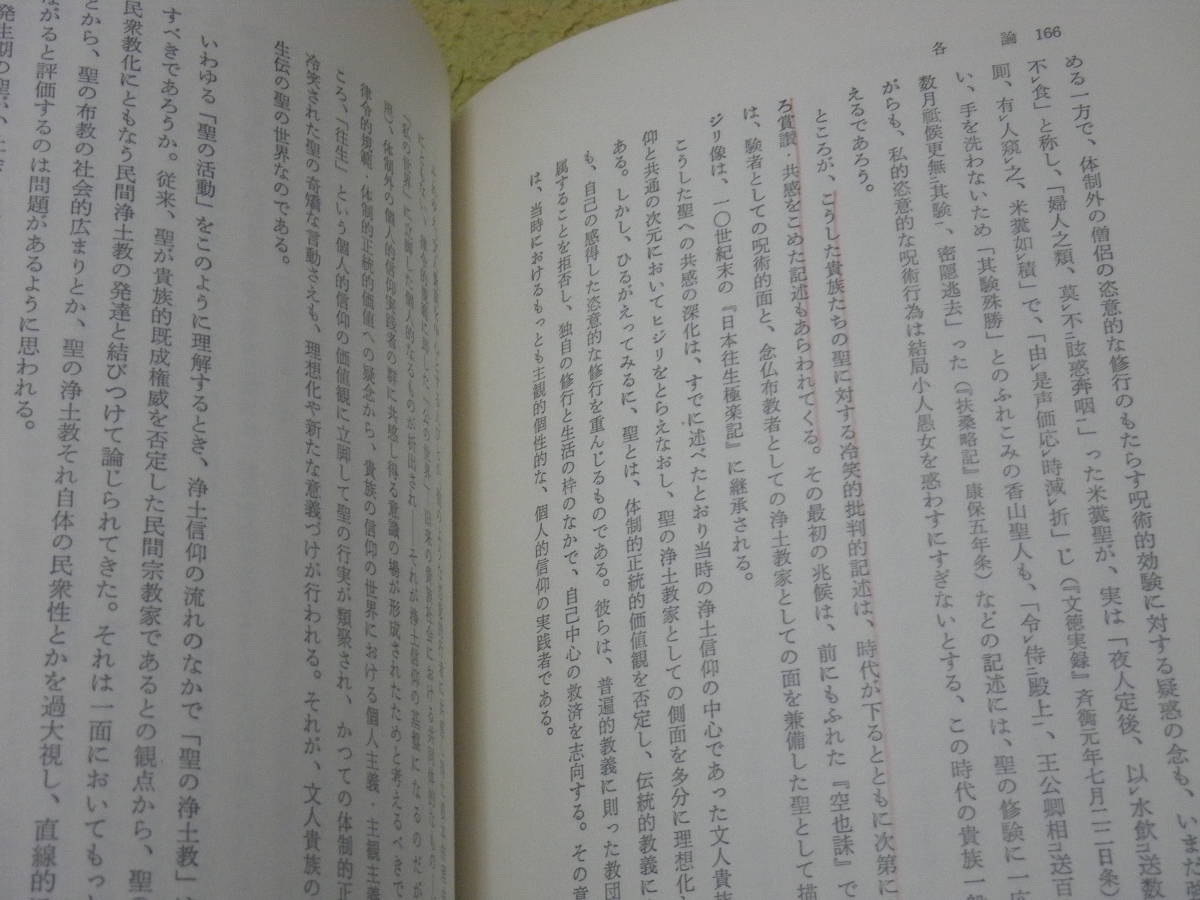 166
各論
める一方で、体制外の僧侶の恣意的な修行のもたらす呪術的効験に対する疑惑の念も、いまだ
不レ食」と称し、「婦人之類、莫レ不二眩惑奔咽一」った米糞聖が、実は「夜人定後、以レ水飲二送数
厠、有レ人窺レ之、米糞如レ積」で、「由レ是声価応レ時減レ折」じ(『文徳実録』斉衡元年七月二二日条)
い、手を洗わないため「其験殊勝」とのふれこみの香山聖人も、「令レ侍二殿上一、王公卿相二送百
数月祗候更無二其験一、密隠逃去」った(『扶桑略記』康保五年条)などの記述には、聖の修験に一
がらも、私的恣意的な呪術行為は結局小人愚女を惑わすにすぎないとする、この時代の貴族一般
えるであろう。
ところが、こうした貴族たちの聖に対する冷笑的批判的記述は、時代が下るとともに次第に
ろ賞讃・共感をこめた記述もあらわれてくる。その最初の兆候は、前にもふれた『空也誄』で
は、験者としての呪術的面と、念仏布教者としての浄土教家としての面を兼備した聖として描
ジリ像は、一〇世紀末の『日本往生極楽記』に継承される。
こうした聖への共感の深化は、すでに述べたとおり当時の浄土信仰の中心であった文人貴族
仰と共通の次元においてヒジリをとらえなおし、聖の浄土教家としての側面を多分に理想化し
ある。しかし、ひるがえってみるに、聖とは、体制的正統的価値観を否定し、伝統的教義に
も、自己の感得した恣意的な修行を重んじるものである。彼らは、普遍的教義に則った教団
属することを拒否し、独自の修行と生活の枠のなかで、自己中心の救済を志向する。その意
は、当時におけるもっとも主観的個性的な、個人的信仰の実践者である。
「私の世界」に立脚した個人的なるものが析出され——それが浄土信仰の基盤になるのだが
、体制外の個人的信仰実践者の群に共感し得る意識の場が形成されたためと考えるべきで
律令的規範・体制的正統的価値への疑念から、貴族の信仰の世界における個人主義・主観主義
ころ、「往生」という個人的信仰の価値観に立脚して聖の行実が類聚され、かつての体制的正
冷笑された聖の奇矯な言動さえも、理想化や新たな意義づけが行われる。それが、文人貴族の
生伝の聖の世界なのである。
いわゆる「聖の活動」をこのように理解するとき、浄土信仰の流れのなかで「聖の浄土教」は
すべきであろうか。従来、聖が貴族的既成権威を否定した民間宗教家であるとの観点から、聖の
民衆教化にともなう民間浄土教の発達と結びつけて論じられてきた。それは一面においてもっ
とから、聖の布教の社会的広まりとか、聖の浄土教それ自体の民衆性とかを過大視し、直線的
ながると評価するのは問題があるように思われる。
発生期の聖が、